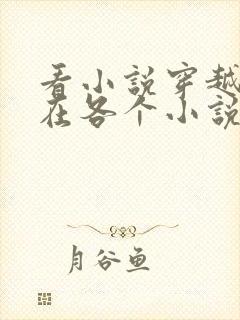 看小说穿越
在各个小说
月谷鱼